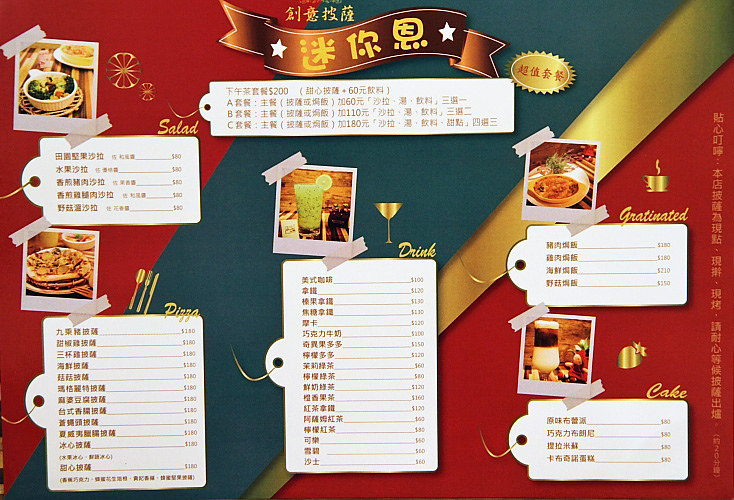 創意披薩
迷你恩
超值套餐
下午茶套餐$200 (甜心披薩+60元飲料)
A套餐:主餐(披薩或焗飯)加60元「沙拉、湯、飲料」三選一
B套餐:主餐(披薩或焗飯)加110元「沙拉、湯、飲料」三選二
C套餐:主餐(披薩或焗飯)加180元「沙拉、湯、飲料、甜點」四選三
Salad
田園堅果沙拉 佐 和風醬 $80
水果沙拉 佐 優格醬 $80
香煎豬肉沙拉 佐 果香醬 $80
香煎雞腿肉沙拉 佐 和風醬 $80
野菇溫沙拉 佐 花香醬 $80
Pizza
九乘豬披薩 $180
甜椒雞披薩 $180
三杯雞披薩 $180
海鮮披薩 $180
菇菇披薩 $180
瑪格麗特披薩 $180
麻婆豆腐披薩 $180
台式香腸披薩 $180
蒼蠅頭披薩 $180
夏威夷臘腸披薩 $180
冰心披薩 $180
(水果冰心、鮮蔬冰心)
甜心披薩 $180
(香蕉巧克力、蜂蜜花生麻糬、貴妃香蘋、蜂蜜堅果披薩)
Drink
美式咖啡 $100
拿鐵 $120
榛果拿鐵 $130
焦糖拿鐵 $130
摩卡 $120
巧克力牛奶 $100
奇異果多多 $150
檸檬多多 $120
茉莉綠茶 $60
檸檬綠茶 $80
鮮奶綠茶 $120
橙香果茶 $160
紅茶拿鐵 $120
阿薩姆紅茶 $60
檸檬紅茶 $80
可樂 $60
雪碧 $60
沙士 $60
Gratinated
豬肉焗飯 $180
雞肉焗飯 $180
海鮮焗飯 $210
野菇焗飯 $150
Cake
原味布蕾派 $80
巧克力布朗尼 $80
提拉米蘇 $80
卡布奇諾蛋糕 $80
貼心叮嚀:本店披薩為現點、現擀、現烤,請耐心等候披薩出爐。(約20分鐘)